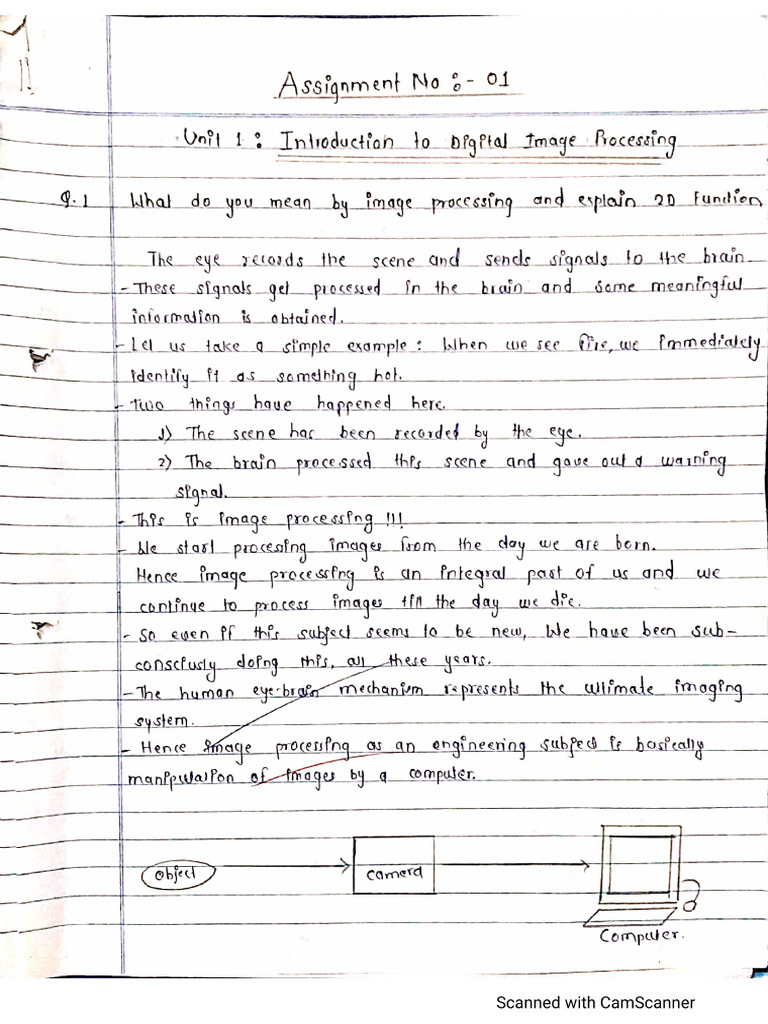 Assignment No :- 01
Unit 1 : Introduction to Digital Image Processing
Q.1 What do you mean by image processing and explain 2D Function
The eye records the scene and sends signals to the brain.
- These signals get processed in the brain and some meaningful
information is obtained.
- Let us take a simple example : When we see fire, we immediately
identify it as something hot.
- Two things have happened here.
1) The scene has been recorded by the eye.
2) The brain processed this scene and gave out a warning
signal.
- This is image processing !!!
- We start procesing images from the day we are born.
Hence image processing is an integral part of us and we
continue to process images till the day we die.
- So even if this subject seems to be new, we have been sub-
consciusly doing this, all these years.
- The human eye-brain mechanism represents the ultimate imaging
system.
- Hence image processing as an engineering subject is basically
manipulation of images by a computer.
Object
camera
Computer.
Scanned with CamScanner